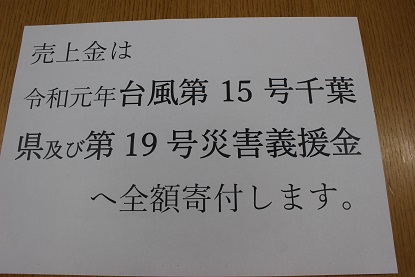 売上金は
令和元年台風第15号千葉
県及び第19号災害義援金
へ全額寄付します。